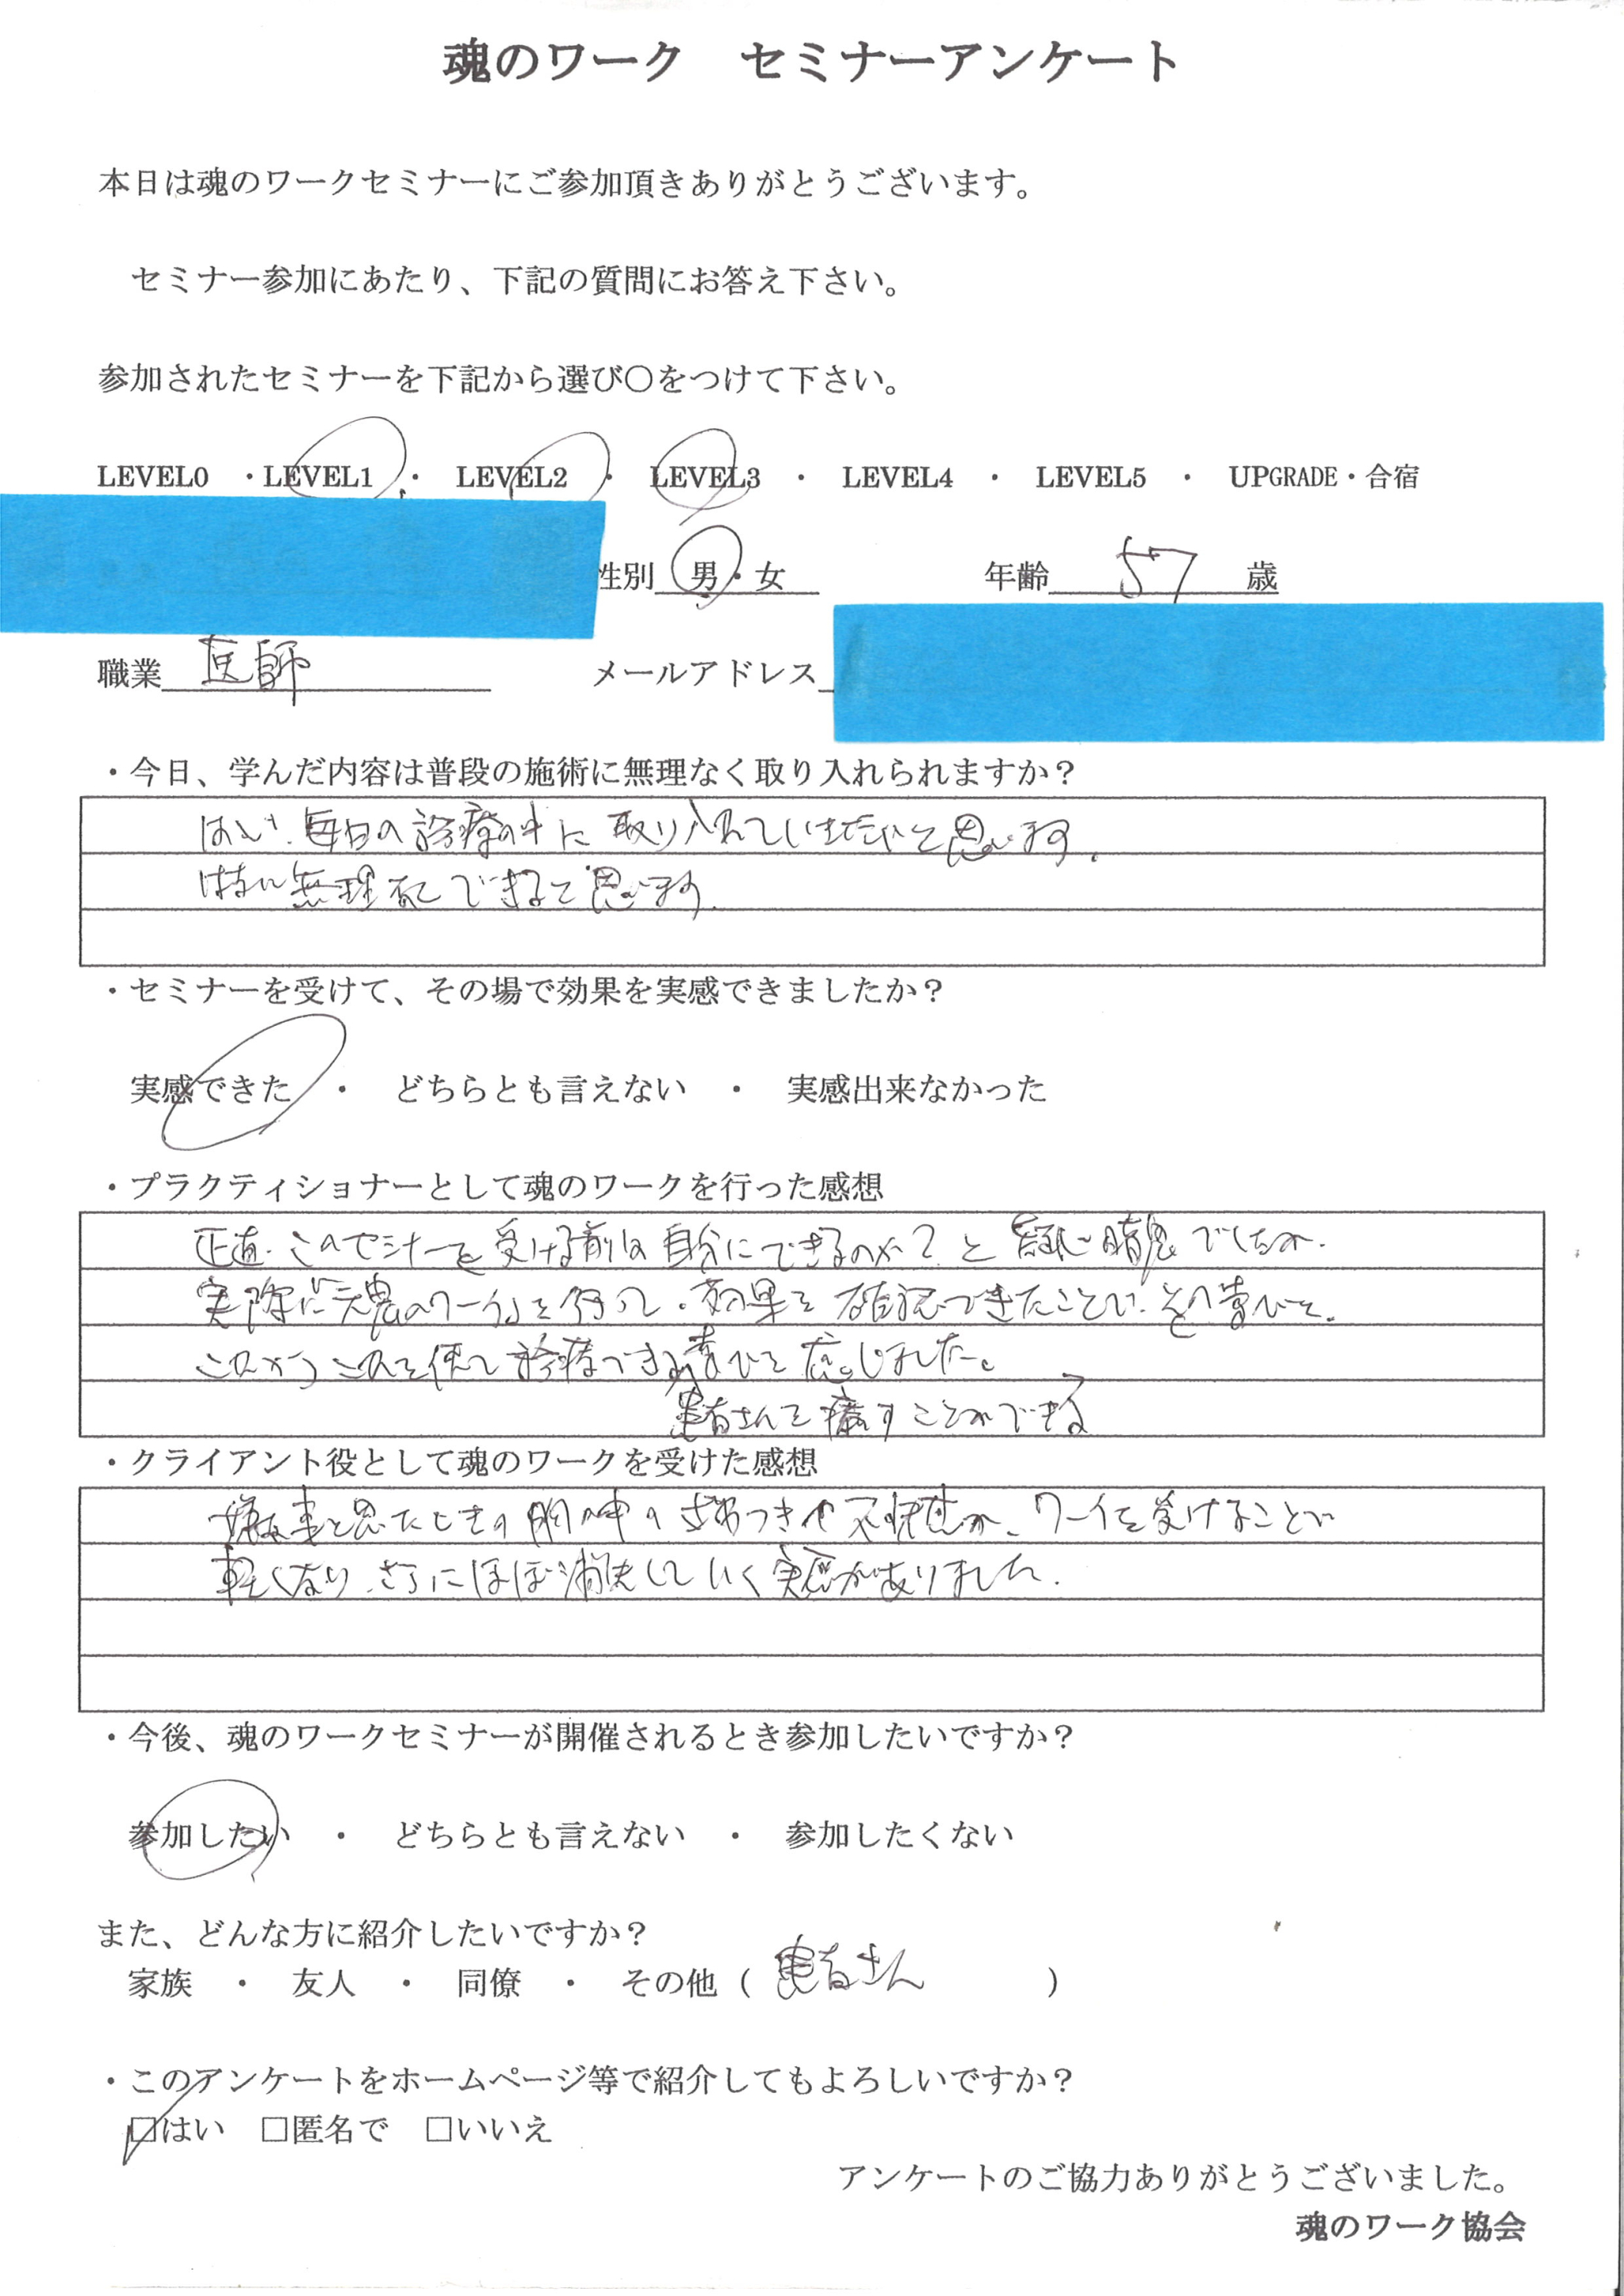 魂のワーク　セミナーアンケート
本日は魂のワークセミナーにご参加頂きありがとうございます。
セミナー参加にあたり、下記の質問にお答え下さい。
参加されたセミナーを下記から選び〇をつけて下さい。
LEVEL0 ・LEVEL1 ・ LEVEL2 ・ LEVEL3 ・ LEVEL4 ・ LEVEL5 ・ UPGRADE・合宿
性別 男・女 年齢 57 歳
職業 医師 メールアドレス
・今日、学んだ内容は普段の施術に無理なく取り入れられますか？
はい、毎日の診療の中に取り入れていきたいと思います。
無理なくできると思います。
・セミナーを受けて、その場で効果を実感できましたか？
実感できた ・ どちらとも言えない ・ 実感出来なかった
・プラクティショナーとして魂のワークを行った感想
正直、このセミナーを受ける前は自分にできるのか？と でしたが、
実際に「魂のワーク」を行って、効果を確認できたことで、その喜びと、
これからこれを使って診療できる喜びを感じました。
患者さんを癒すことができる
・クライアント役として魂のワークを受けた感想
嫌な事を思ったときの胸の中の ざわつきや不快感が、ワークを受けることで
軽くなり、さらにほぼ消失していく実感がありました。
・今後、魂のワークセミナーが開催されるとき参加したいですか？
参加したい ・ どちらとも言えない ・ 参加したくない
また、どんな方に紹介したいですか？
家族 ・ 友人 ・ 同僚 ・ その他（ 患者さん ）
・このアンケートをホームページ等で紹介してもよろしいですか？
□はい □匿名で □いいえ
アンケートのご協力ありがとうございました。
魂のワーク協会